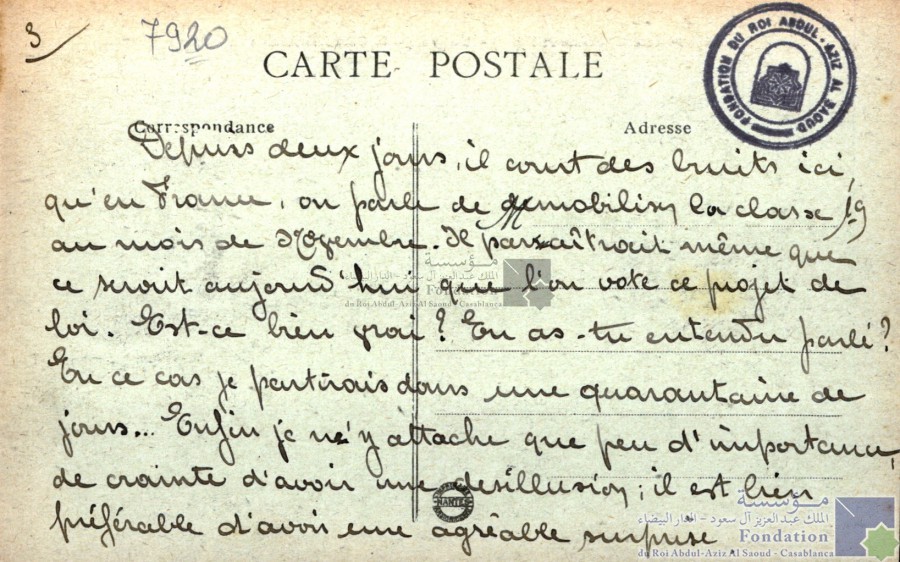 3
7920
CARTE POSTALE
FONDATION DU ROI ABDUL-AZIZ AL SAOUD
Correspondance
Adresse
Depuis deux jours, il court des bruits ici,
qu'en France, on parle de mobiliser la classe 19
au mois de Novembre. Il paraîtrait même que
ce serait aujourd'hui que l'on vote ce projet de
loi. Est-ce bien vrai? En as-tu entendu parlé?
En ce cas je partirais dans une quarantaine de
jours... Enfin je n'y attache que peu d'importance,
de crainte d'avoir une desillusion; il est bien
préférable d'avoir une agréable surprise
NANTES
مؤسسة
الملك عبد العزيز آل سعود - الدار البيضاء
Fondation
du Roi Abdul-Aziz Al Saoud - Casablanca
مؤسسة
الملك عبد العزيز آل سعود - الدار البيضاء
Fondation
du Roi Abdul-Aziz Al Saoud - Casablanca